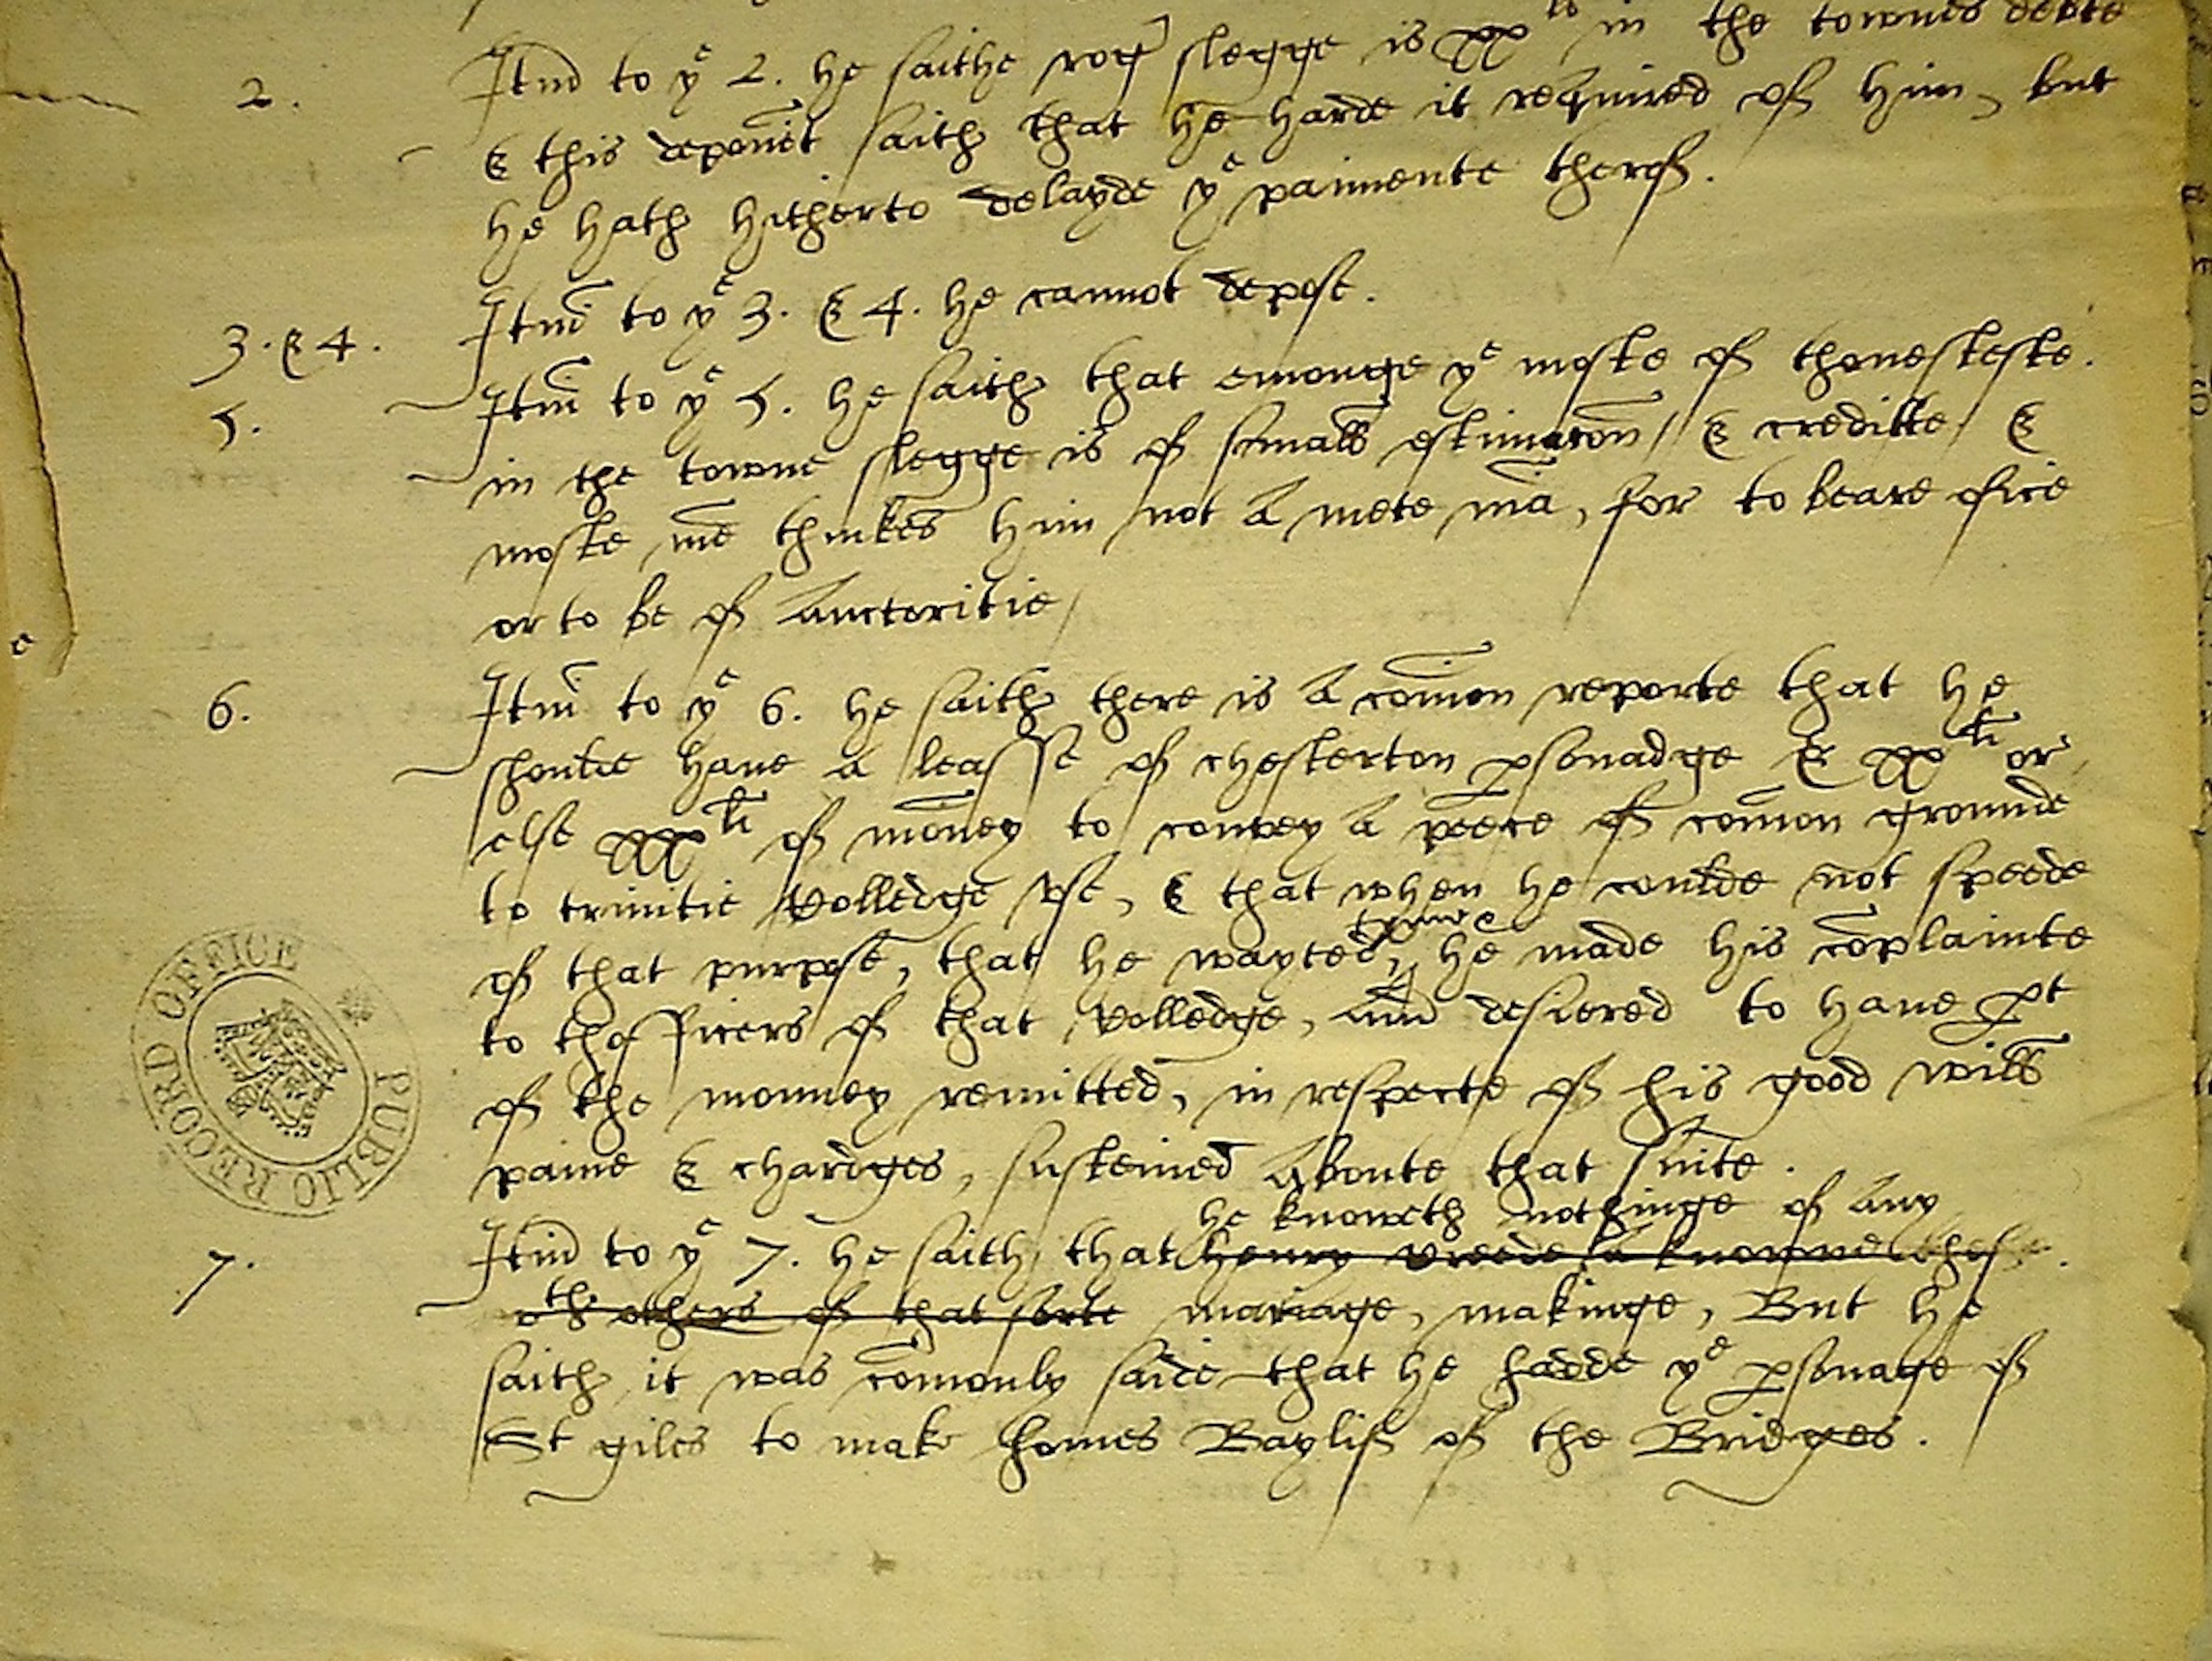 2. Itm̃ to yͤ 2. he saithe rog slegge is xxˡⁱ in the townes debte
& this deponẽt saith that he harde it required of him, but
he hath hitherto delayde yͤ paimente therof.
3. & 4. Itm̃ to yͤ 3. & 4. he cannot depose.
5. Itm̃ to yͤ 5. he saith that emonge yͤ moste of thonesteste.
in the towne slegge is of small estimacõn / & creditte / &
moste mẽ thinkes him not A mete mã, for to beare ofice
or to be of Auctoritie /
6. Itm̃ to yͤ 6. he saith there is A com̃on reporte that he
shoulde have A leasse of chesterton psonadge & xxˡⁱ or
else xxxˡⁱ of mõney to convey A peece of com̃on grounde
to trinitie Colledge use, & that when he coulde not speede
of that purpose, that he wayted, he made his cõplainte
to thofficers of that Colledge, And desiered to have pt
of the monney remitted, in respecte of his good will
paine & chardges, susteined Aboute that suite.
he knoweth nothinge of Any
7. Itm̃ to yͤ 7. he saith that henry
oth others of that sorte mariage, makinge, But he
saith it was com̃only saide that he hadde yͤ psonage of
St giles to make homes Baylif of the Bridges.
PUBLIC RECORD OFFICE